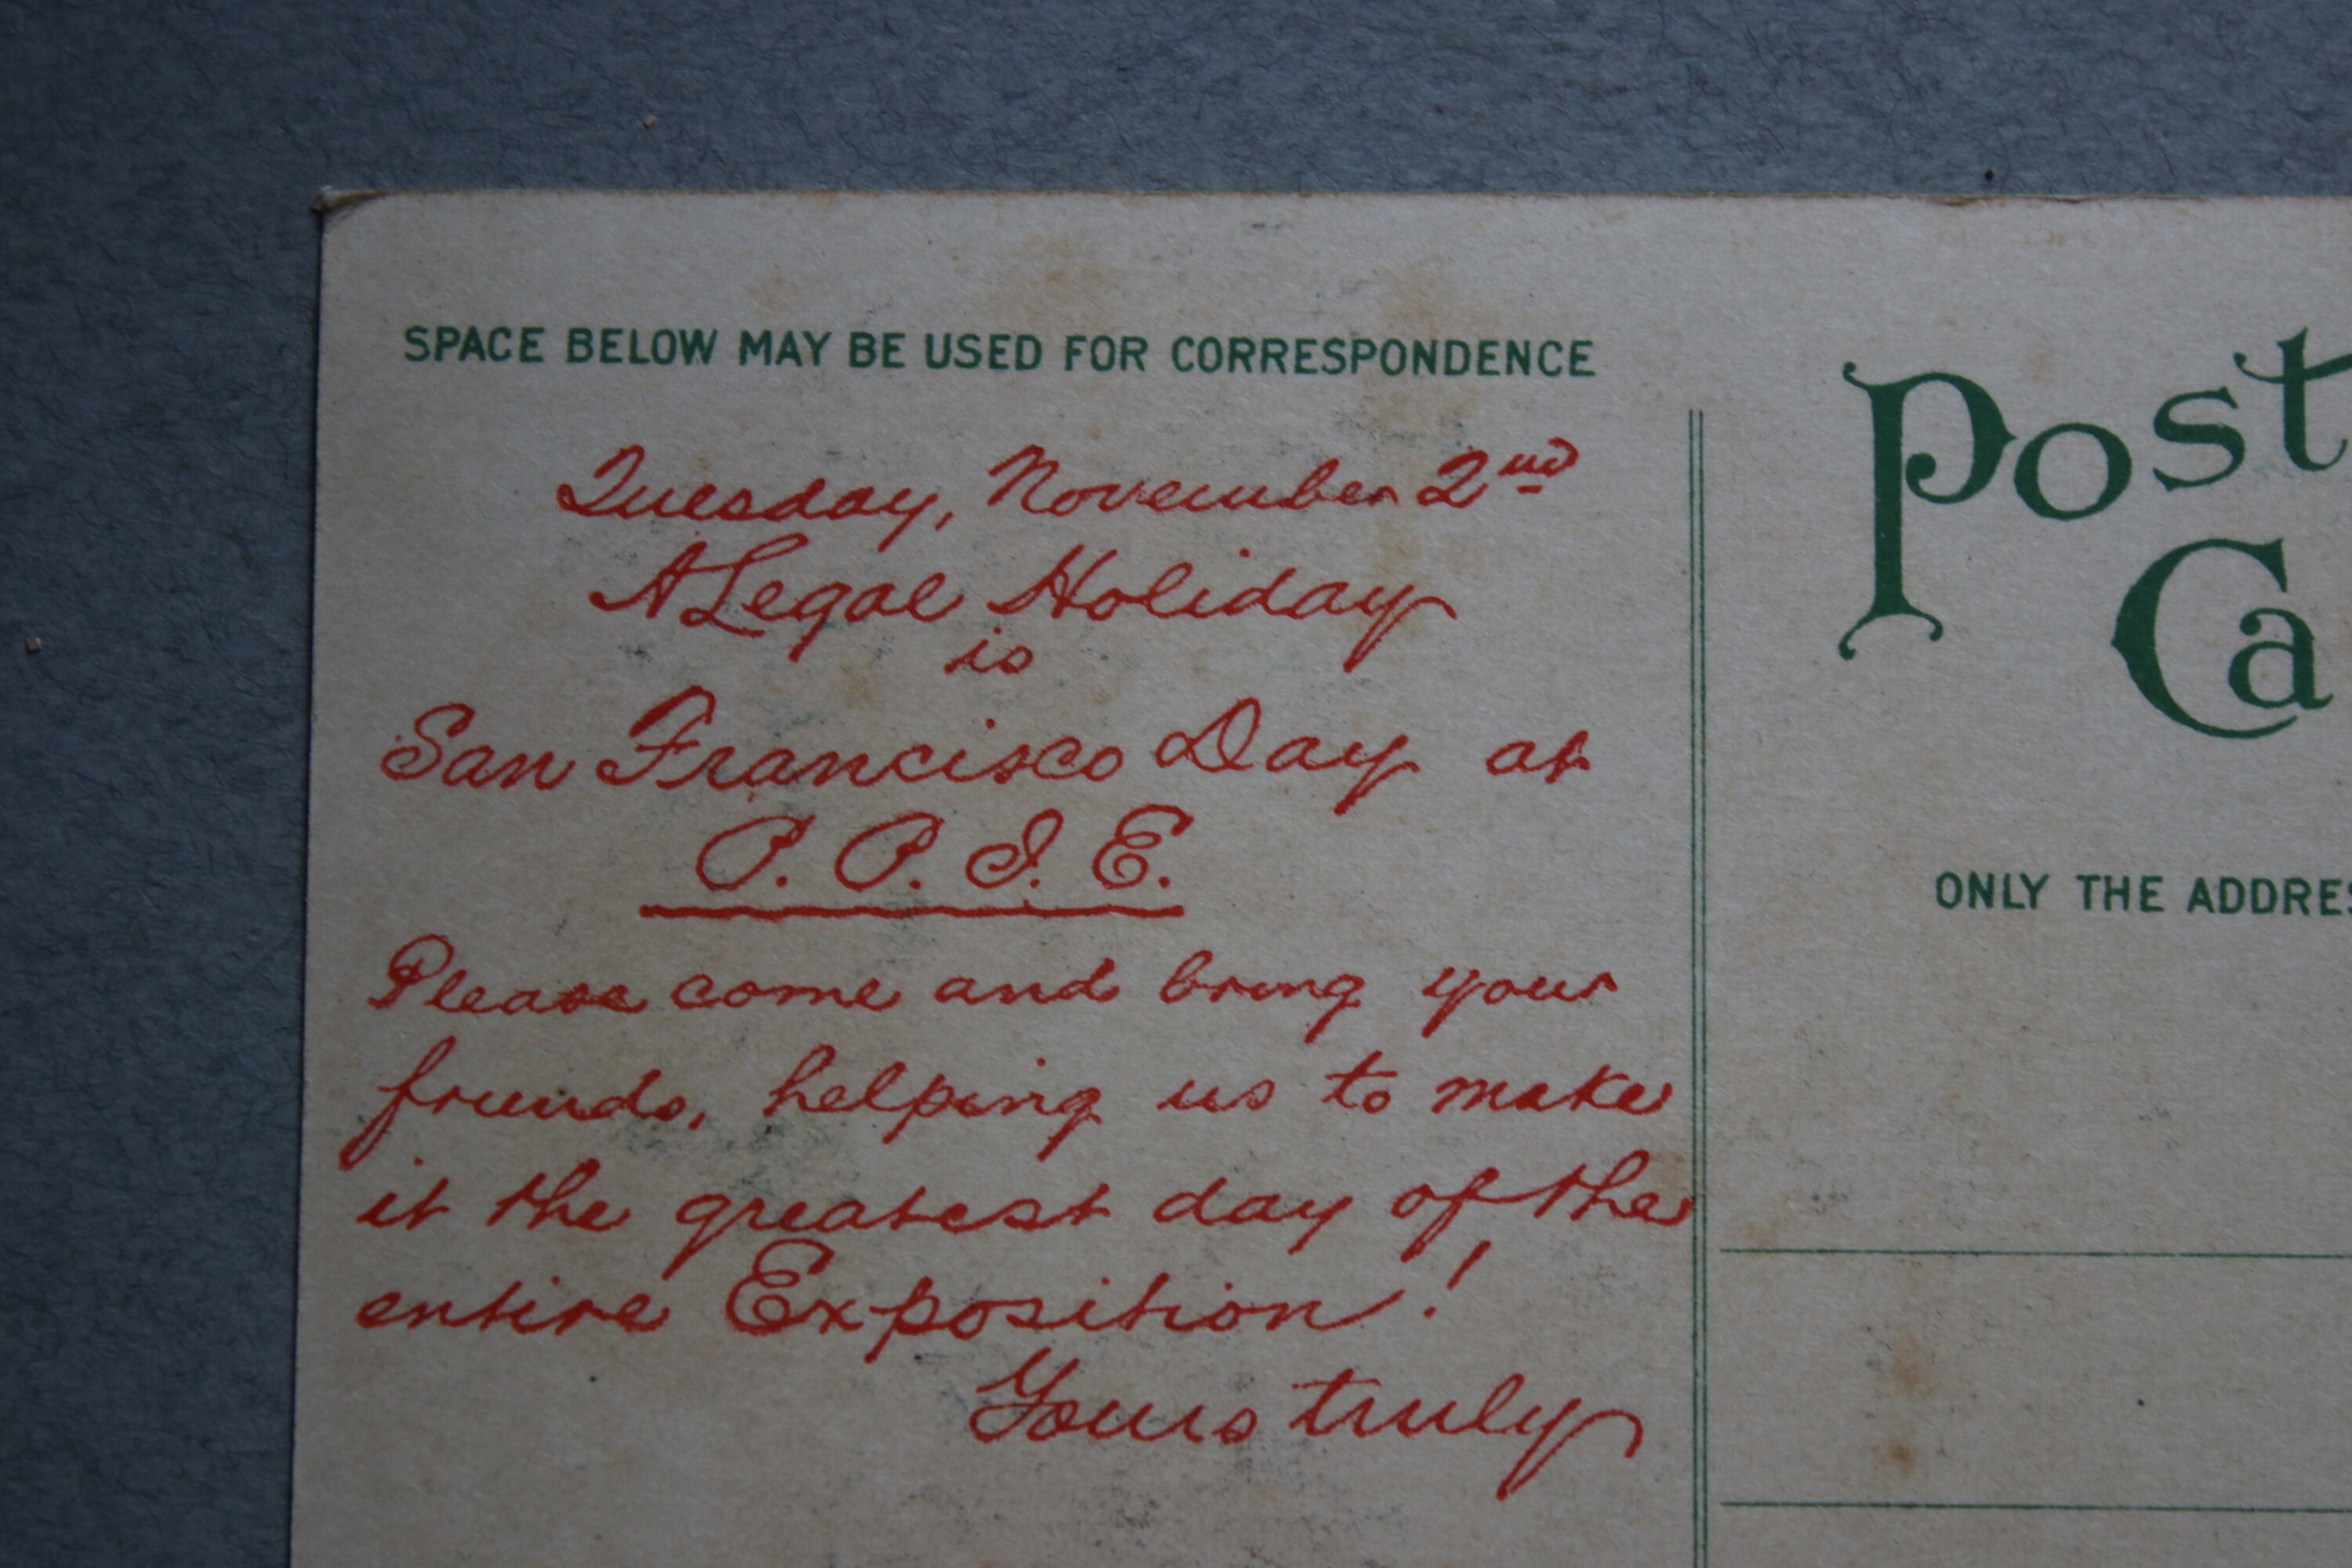 SPACE BELOW MAY BE USED FOR CORRESPONDENCE
Tuesday, November 2nd
A Legal Holiday
is
San Francisco Day at
P. P. I. E.
Please come and bring your
friends, helping us to make
it the greatest day of the
entire Exposition!
Yours truly
Post
Ca
ONLY THE ADDRES